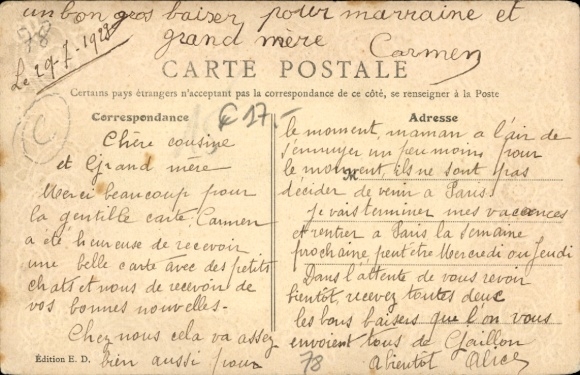 un bon gros baiser pour marraine et
grand mère Carmen
78
Le 29-7-1928
CARTE POSTALE
Certains pays étrangers n'acceptant pas la correspondance de ce côté, se renseigner à la Poste
€ 17.-
C
Correspondance
Chère cousine
et Grand mère
Merci beaucoup pour
la gentille carte. Carmen
a été heureuse de recevoir
une belle carte avec des petits
chats et nous de recevoir de
vos bonnes nouvelles.
Chez nous cela va assez
bien aussi pour
Édition E. D.
Adresse
le moment, maman a l'air de
s'ennuyer un peu moins pour
le moment, ils ne sont pas
décider de venir à Paris.
Je vais terminer mes vacances
et rentrer à Paris la semaine
prochaine peut être Mercredi ou Jeudi
Dans l'attente de vous revoir
bientôt, recevez toutes deux
les bons baisers que l'on vous
envoient tous de Gaillon
78 a bientôt Alice